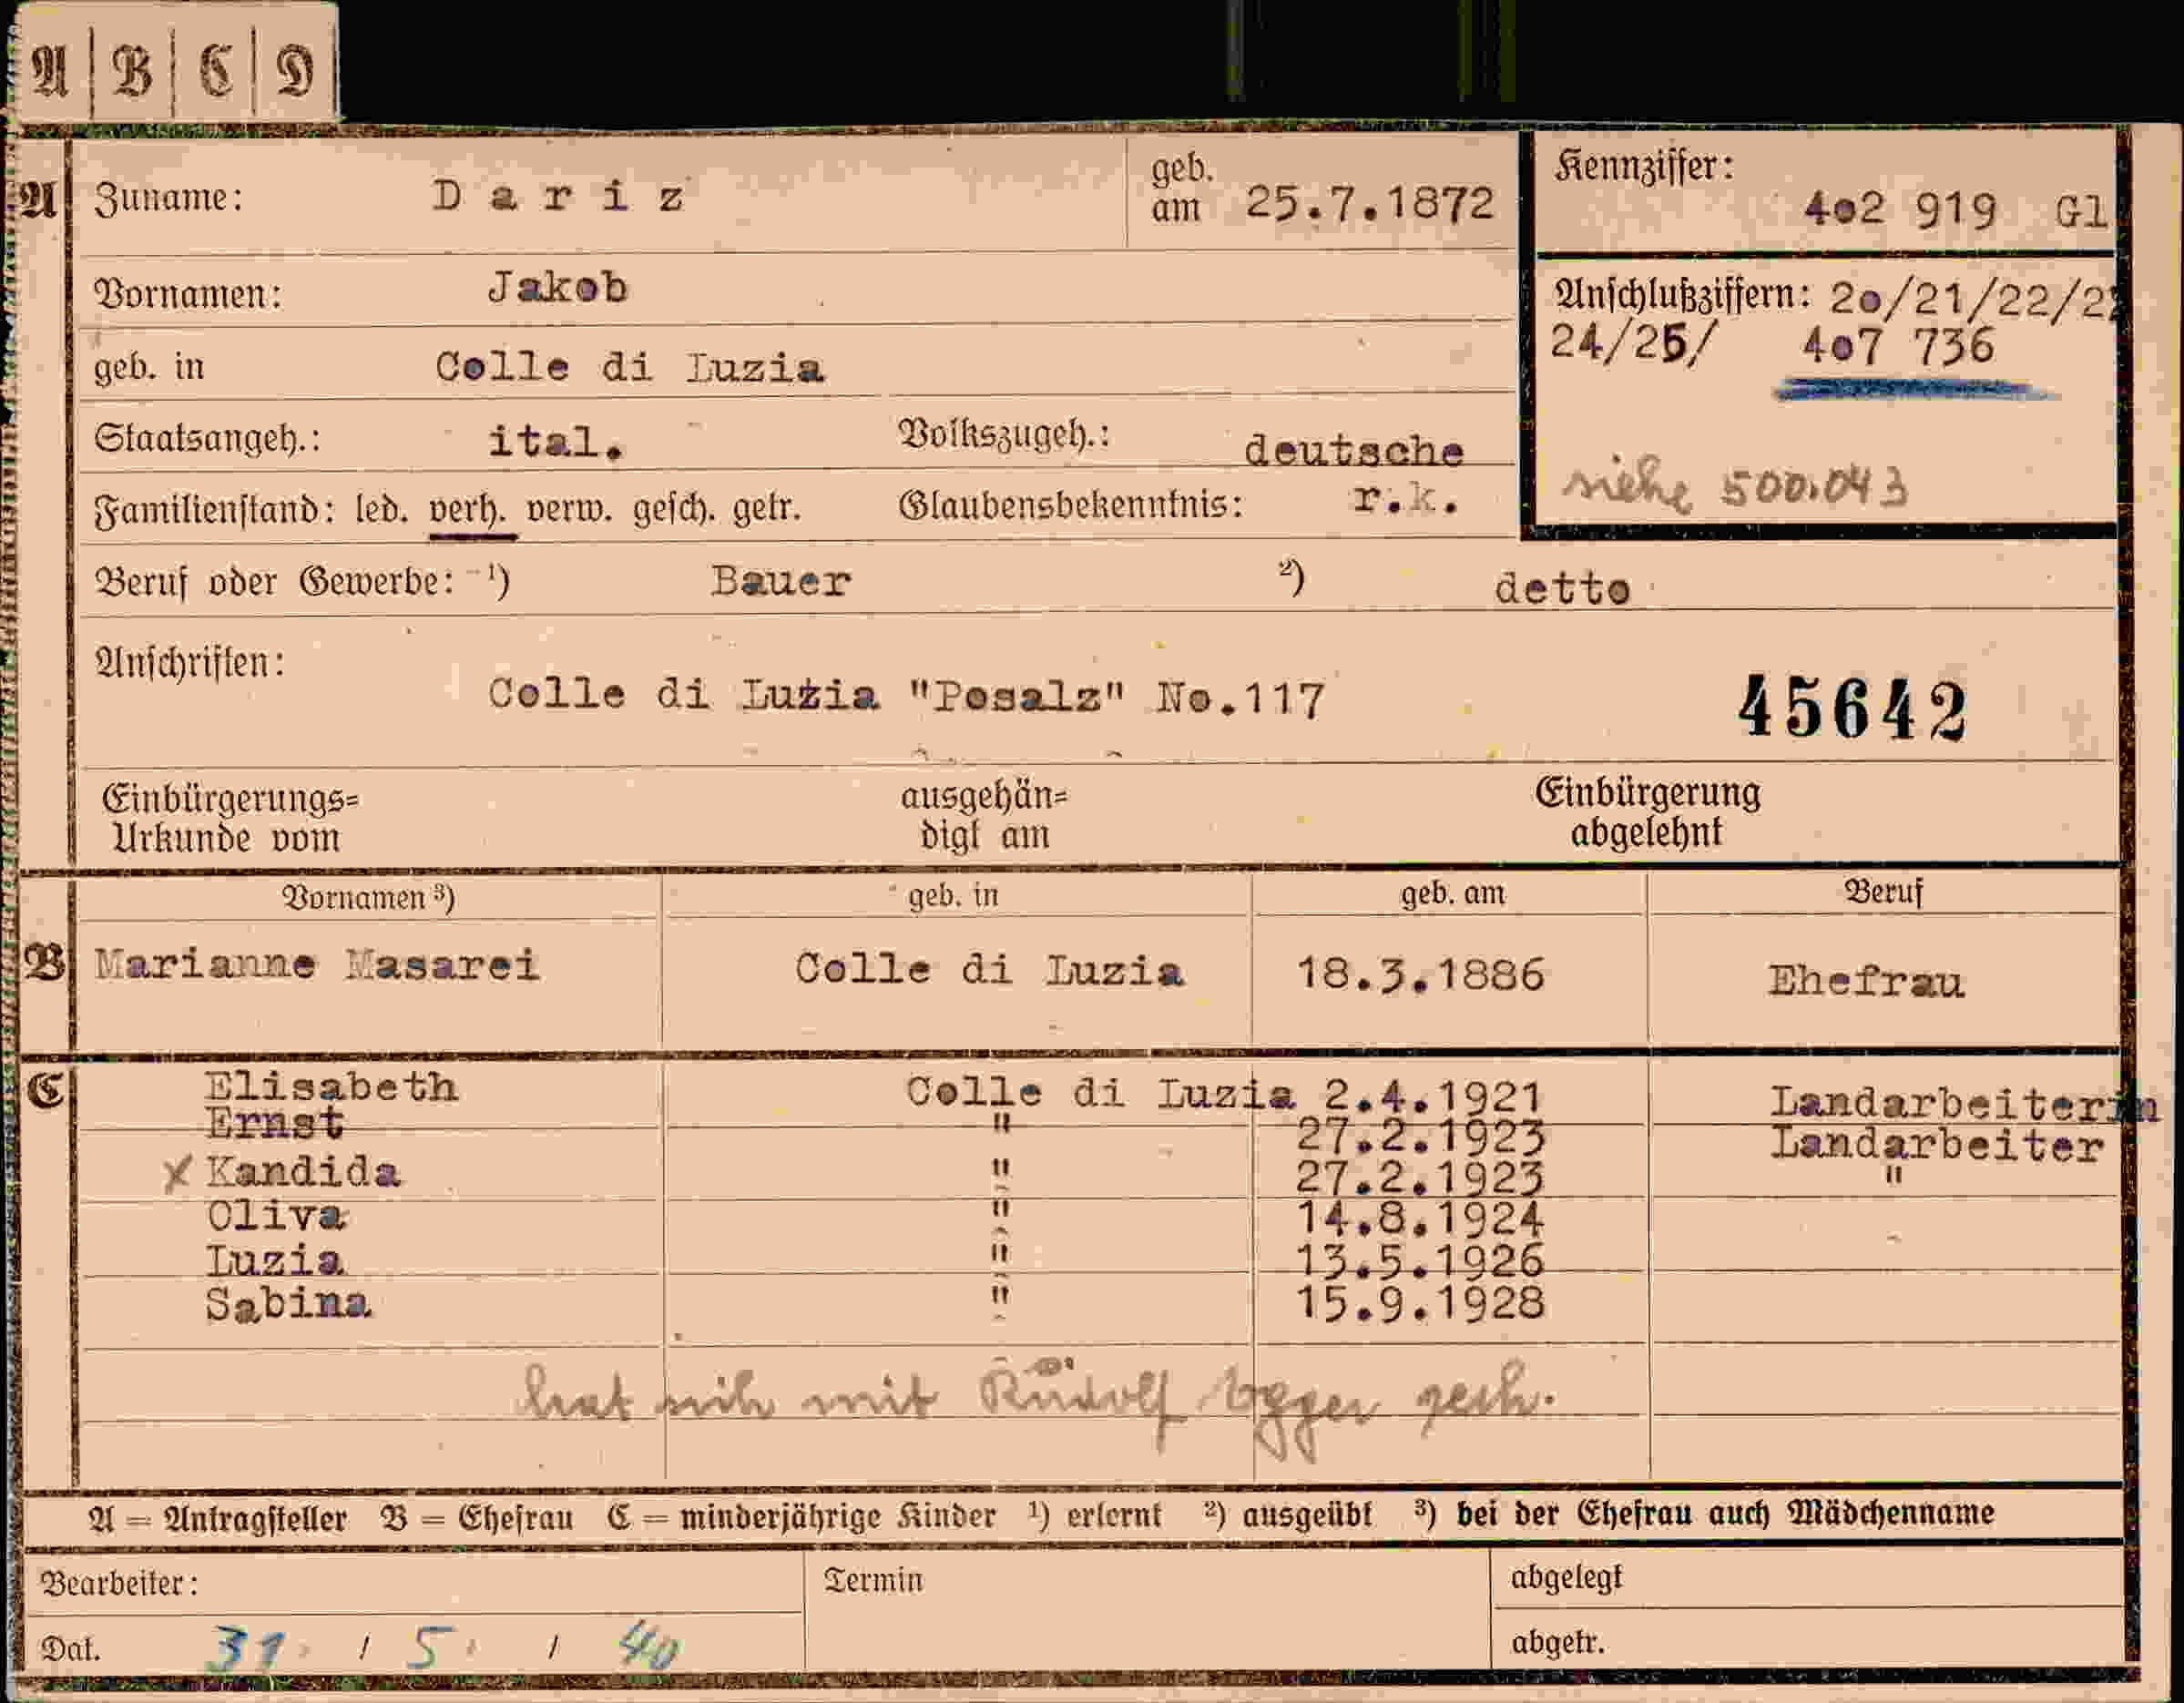 A | B | C | D
A Zuname: Dariz geb. am 25.7.1872
Kennziffer: 402 919 Gl
Vornamen: Jakob
Anschlußziffern: 20/21/22/2
24/25/ 407 736
geb. in Colle di Luzia
Staatsangeh.: ital. Volkszugeh.: deutsche
siehe 500.043
Familienstand: led. verh. verw. gesch. getr. Glaubensbekenntnis: r.k.
Beruf oder Gewerbe: ¹) Bauer ²) detto
Anschriften: Colle di Luzia "Posalz" No.117 45642
Einbürgerungs= ausgehän= Einbürgerung
Urkunde vom digt am abgelehnt
Vornamen ³) geb. in geb. am Beruf
B Marianne Masarei Colle di Luzia 18.3.1886 Ehefrau
C Elisabeth Colle di Luzia 2.4.1921 Landarbeiterin
Ernst " 27.2.1923 Landarbeiter
x Kandida " 27.2.1923 "
Oliva " 14.8.1924
Luzia " 13.5.1926
Sabina " 15.9.1928
hat sich mit Rudolf Egger
A = Antragsteller B = Ehefrau C = minderjährige Kinder ¹) erlernt ²) ausgeübt ³) bei der Ehefrau auch Mädchenname
Bearbeiter: Termin abgelegt
Dat. 31. / 5. / 40 abgetr.